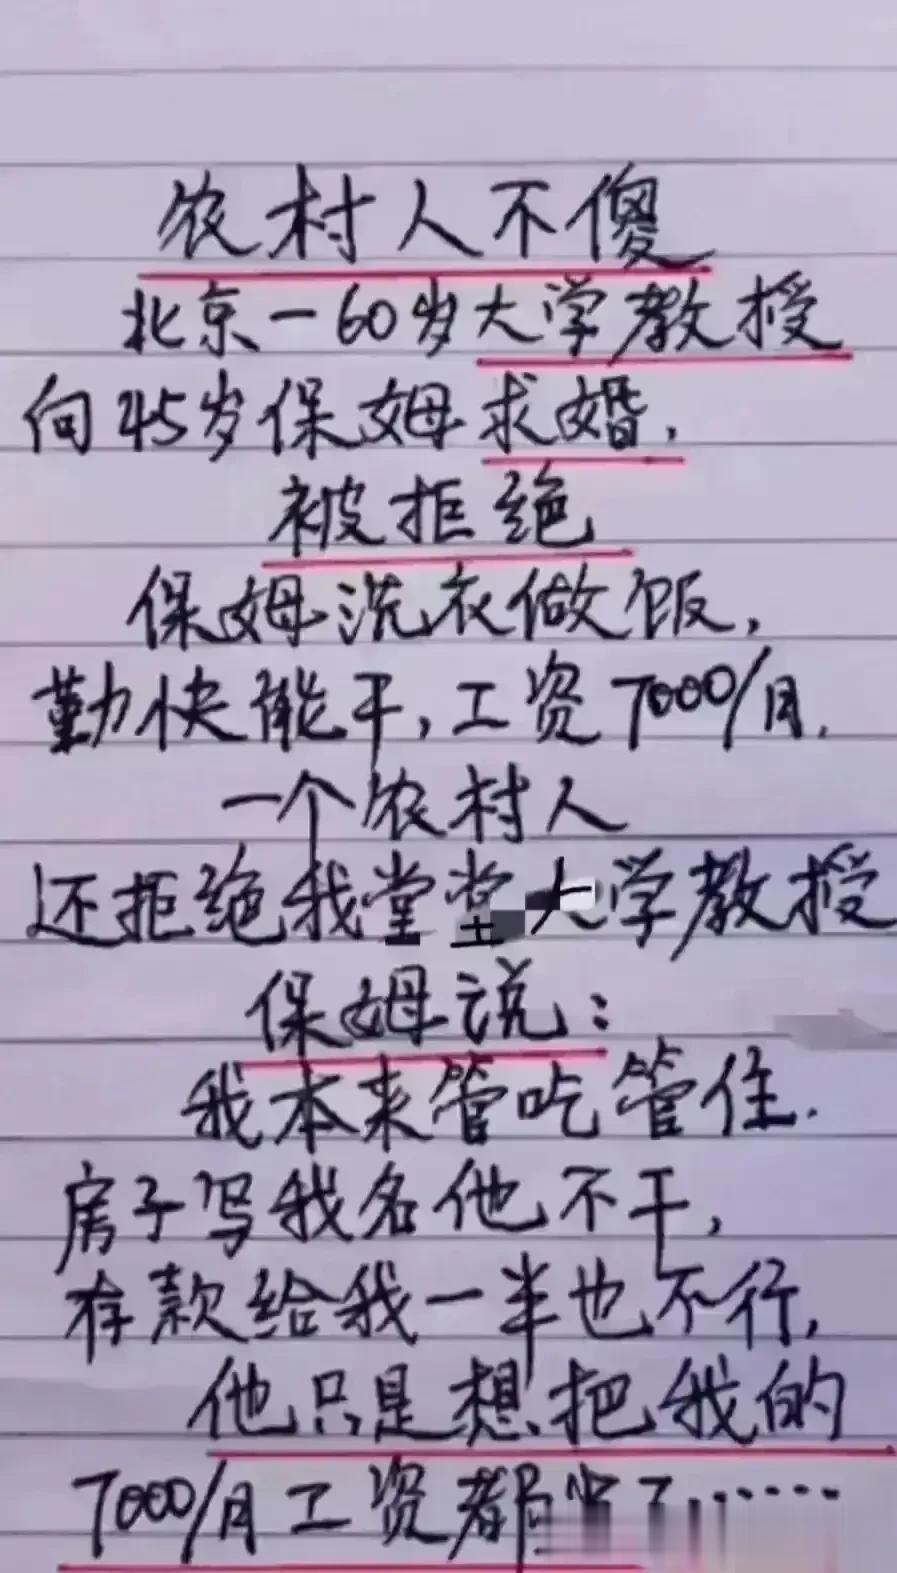 农村人不傻
北京一60岁大学教授
向45岁保姆求婚,
被拒绝
保姆洗衣做饭,
勤快能干,工资7000/月.
一个农村人
还拒绝我堂堂大学教授
保姆说:
我本来管吃管住.
房子写我名他不干,
存款给我一半也不行,
他只是想把我的
7000/月工资都……